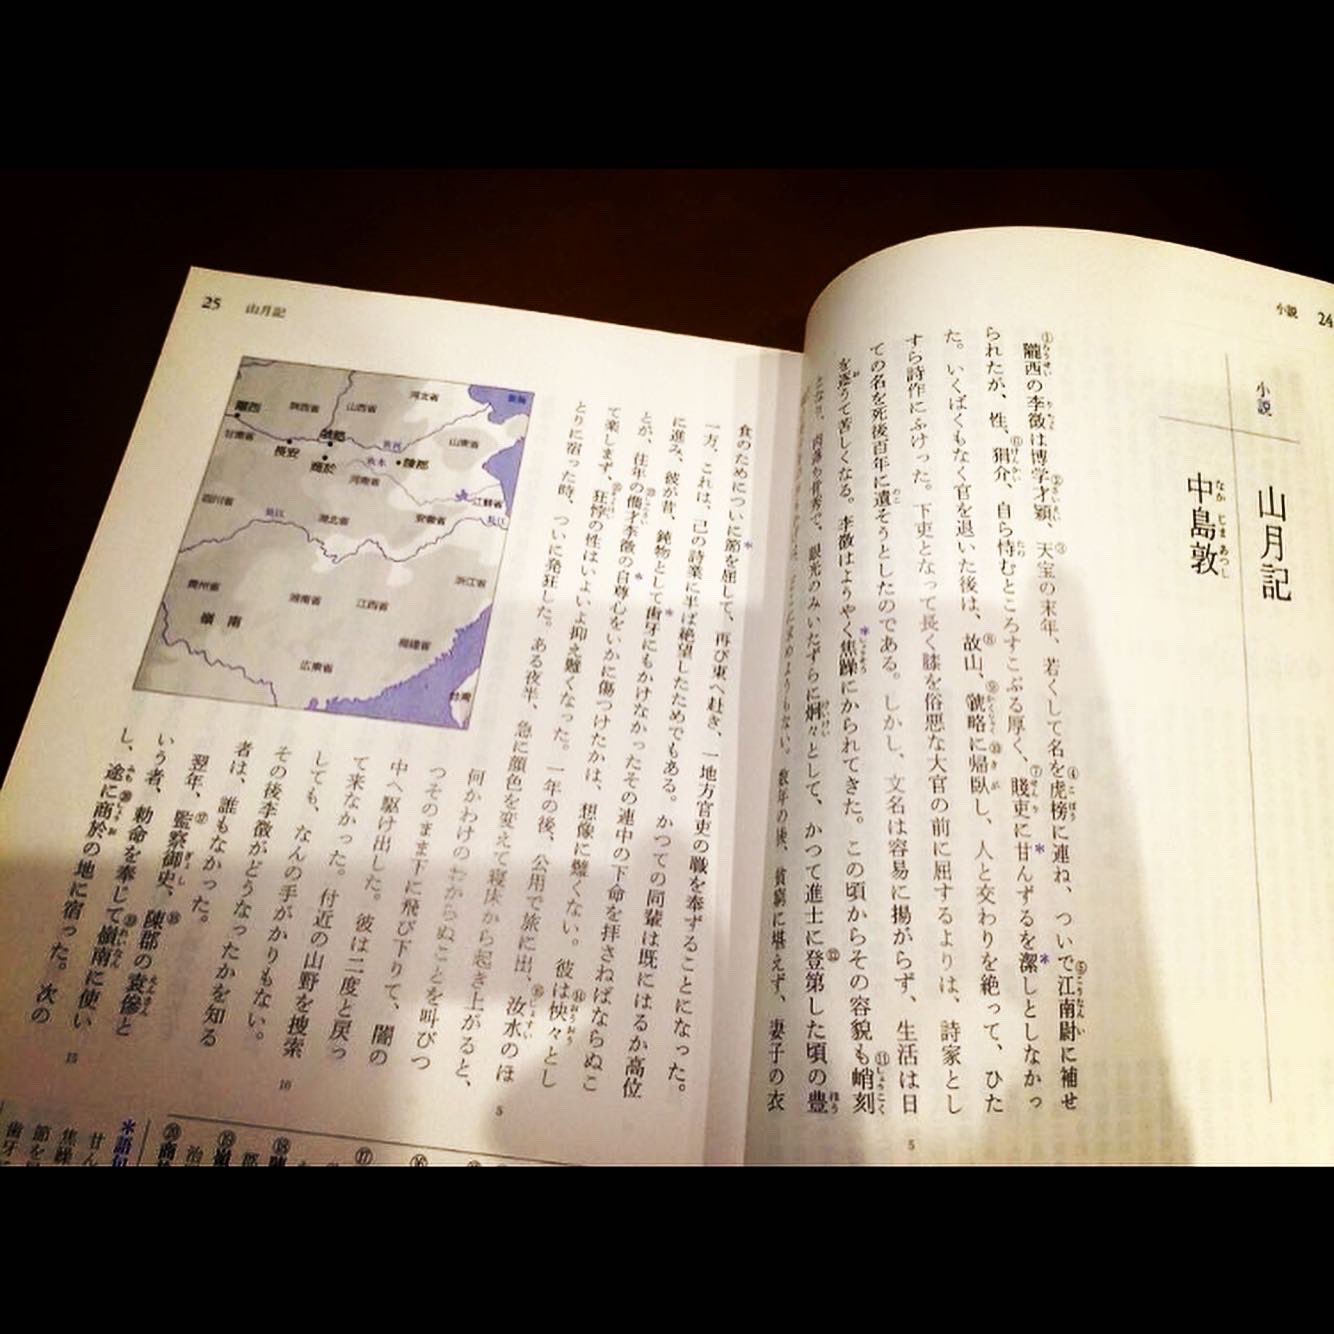 小説 24
小説
山月記
中島敦
なか じま あつし
①隴西の李徴は博学才穎、③天宝の末年、若くして名を④虎榜に連ね、ついで⑤江南尉に補せ
られたが、性、⑥狷介、自ら恃むところすこぶる厚く、⑦賤吏に甘んずるを潔しとしなかっ
た。いくばくもなく官を退いた後は、⑧故山、⑨虢略に⑩帰臥し、人と交わりを絶って、ひた
すら詩作にふけった。下吏となって長く膝を俗悪な大官の前に屈するよりは、詩家とし
ての名を死後百年に遺そうとしたのである。しかし、文名は容易に揚がらず、生活は日
を逐うて苦しくなる。李徴はようやく*焦躁にかられてきた。この頃からその容貌も⑪峭刻
となり、肉落ち骨秀で、眼光のみいたずらに炯々として、かつて進士に⑫登第した頃の豊
に求めようもない。数年の後、貧窮に堪えず、妻子の衣
5
25 山月記
食のためについに*節を屈して、再び東へ赴き、一地方官吏の職を奉ずることになった。
一方、これは、己の詩業に半ば絶望したためでもある。かつての同輩は既にはるか高位
に進み、彼が昔、鈍物として*歯牙にもかけなかったその連中の下命を拝さねばならぬこ
とが、往年の儁才李徴の*自尊心をいかに傷つけたかは、想像に難くない。彼は⑭怏々とし
て楽しまず、狂悖の性はいよいよ抑え難くなった。一年の後、公用で旅に出、汝水のほ
とりに宿った時、ついに発狂した。ある夜半、急に顔色を変えて寝床から起き上がると、
何かわけのわからぬことを叫びつ
つそのまま下に飛び下りて、闇の
中へ駆け出した。彼は二度と戻っ
て来なかった。付近の山野を捜索
しても、なんの手がかりもない。
その後李徴がどうなったかを知る
者は、誰もなかった。
翌年、⑰監察御史、⑱陳郡の袁傪と
いう者、勅命を奉じて⑲嶺南に使い
し、途に⑳商於の地に宿った。次の
5
10
15
河北省
山西省
陝西省
隴西
甘粛省
長安
虢略
商於
黄河
汝水
陳郡
山東省
河南省
江蘇省
四川省
長江
湖北省
安徽省
長江
浙江省
貴州省
湖南省
江西省
嶺南
福建省
広東省
台湾
⑯
⑰
⑱陳
郡
⑲嶺
治
⑳商
*語句
甘ん
焦躁
節を
歯牙